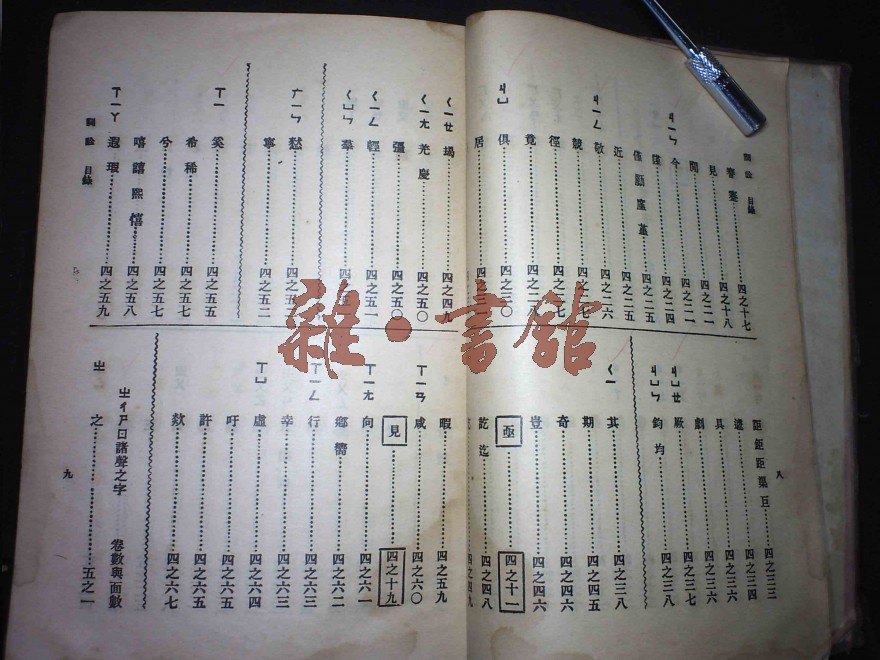 詞詮 目錄
謇蹇……四之十七
見……四之十八
間……四之二一
ㄐㄧㄣ 今……四之二一
謹……四之二四
僅勤廑堇……四之二五
近……四之二五
ㄐㄧㄥ 敬……四之二六
競……四之二七
徑……四之二七
竟……四之二八
ㄐㄩ 俱……四之三〇
居……四之三
詎鉅距渠巨……四之三三
遽……四之三四
具……四之三六
劇……四之三六
ㄐㄩㄝ 厥……
ㄐㄩㄣ 鈞均……四之三八
ㄑㄧ 其……四之三八
期……四之四五
奇……四之四六
豈……四之四六
亟……四之十一
訖迄……四之四八
四之四九
八
ㄑㄧㄝ 朅……四之四九
ㄑㄧㄤ 羌慶……四之五〇
彊……四之五〇
ㄑㄧㄥ 輕……四之五一
ㄑㄩㄣ 羣……四之
ㄬㄧㄣ 憖……四之五二
寧……四之五二
ㄒㄧ 奚……四之五五
希稀……四之五七
兮……四之五七
嘻譆熙僖……四之五八
ㄒㄧㄚ 遐瑕……四之五九
詞詮 目錄
暇……四之五九
ㄒㄧㄢ 咸……四之六〇
見……四之十九
ㄒㄧㄤ 向……四之六一
鄉嚮……四之六二
ㄒㄧㄥ 行……四之六三
幸……四之六三
ㄒㄩ 虛……四之六四
吁……四之六五
許……四之六五
欻……四之六七
ㄓㄔㄕㄖ諸聲之字 卷數與面數
ㄓ 之……五之一
九
雜·書館